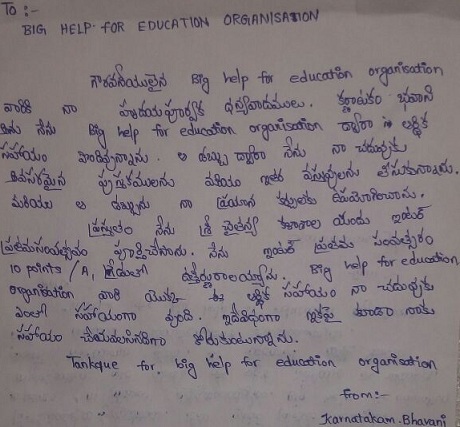 To :-
BIG HELP FOR EDUCATION ORGANISATION
గౌరవనీయులైన Big help for education organisation
వారికి నా హృదయపూర్వక ధన్యవాదములు. కర్ణాటకం భవాని
అను నేను Big help for education organisation ద్వారా ఆర్థిక
సహాయం పొందివున్నాను. ఆ డబ్బు ద్వారా నేను నా చదువుకు
అవసరమైన పుస్తకములను మరియు ఇతర వస్తువులను తీసుకున్నాను.
మరియు ఆ డబ్బును నా ప్రయాణ ఖర్చులకు ఉపయోగించాను.
ప్రస్తుతం నేను శ్రీ చైతన్య కళాశాల యందు ఇంటర్
ప్రథమసంవత్సరం పూర్తిచేసాను. నేను ఇంటర్ ప్రథమ సంవత్సరం
10 points / A1 గ్రేడులో ఉత్తీర్ణురాలయ్యాను. Big help for education
organisation వారి యొక్క ఈ ఆర్థిక సహాయం నా చదువుకు
ఎంతో సహాయంగా వుంది. ఇదేవిధంగా ఇకపై కూడా నాకు
సహాయం చేయవలసినదిగా కోరుకుంటున్నాను.
Tankque for, big help for education organisation
from:-
Karnatakam.Bhavani